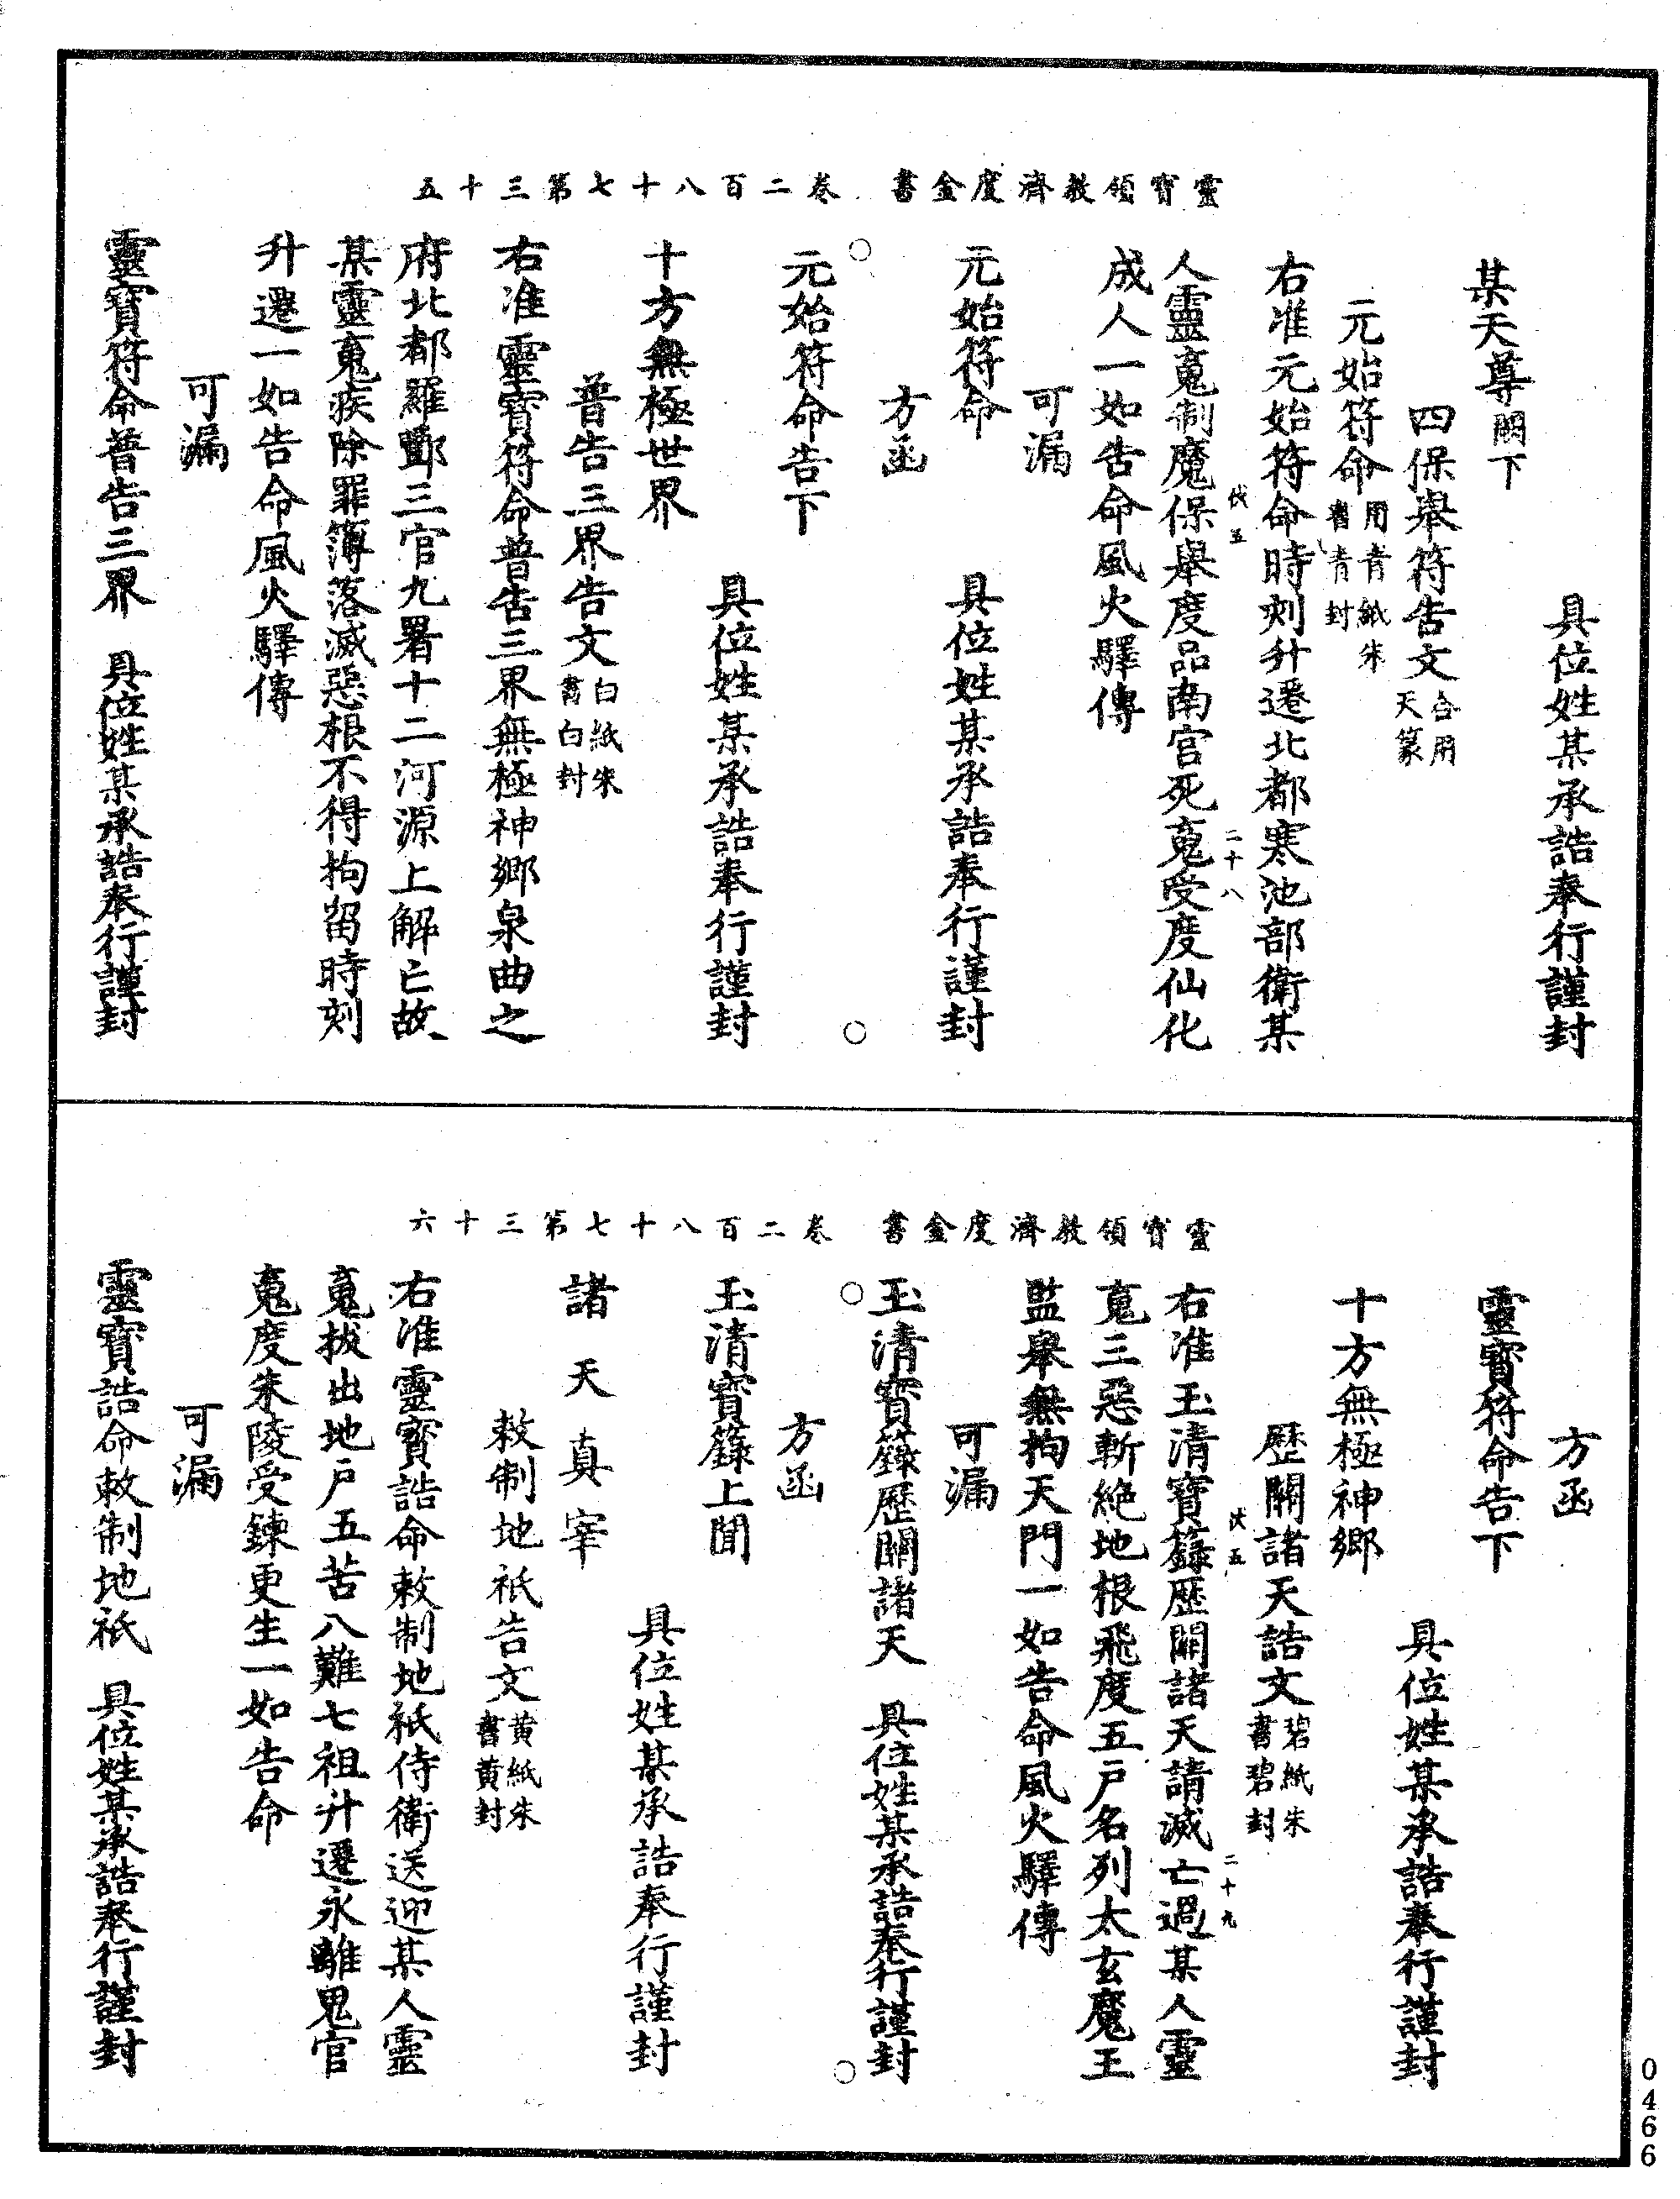 靈寶領教濟度金書　卷二百八十七第三十五
具位姓某承誥奉行謹封
某天尊闕下
四保舉符告文合用天篆
元始符命用青紙朱書青封
右准元始符命時刻升遷北都寒池部衛某
伐五　二十八
人靈䰟制魔保舉度品南宮死䰟受度仙化
成人一如告命風火驛傳
可漏
元始符命　具位姓某承誥奉行謹封
方函
元始符命告下
具位姓某承誥奉行謹封
十方無極世界
普告三界告文白紙朱書白封
右准靈寶符命普告三界無極神鄉泉曲之
府北都羅酆三官九署十二河源上解亡故
某靈䰟疾除罪簿落滅惡根不得拘留時刻
升遷一如告命風火驛傳
可漏
靈寶符命普告三界　具位姓某承誥奉行謹封
靈寶領教濟度金書　卷二百八十七第三十六
方函
靈寶符命告下
具位姓某承誥奉行謹封
十方無極神鄉
歷關諸天誥文碧紙朱書碧封
右准玉清寶籙歷關諸天請滅亡過某人靈
伐五　二十九
䰟三惡斬絶地根飛度五戶名列太玄魔王
監舉無拘天門一如告命風火驛傳
可漏
玉清寶籙歷關諸天　具位姓某承誥奉行謹封
方函
玉清寶籙上聞
具位姓某承誥奉行謹封
諸天真宰
敕制地祇告文黄紙朱書黄封
右准靈寶誥命敕制地祇侍衛送迎某人靈
䰟拔出地戶五苦八難七祖升遷永離鬼官
䰟度朱陵受鍊更生一如告命
可漏
靈寶誥命敕制地祇　具位姓某承誥奉行謹封
0466